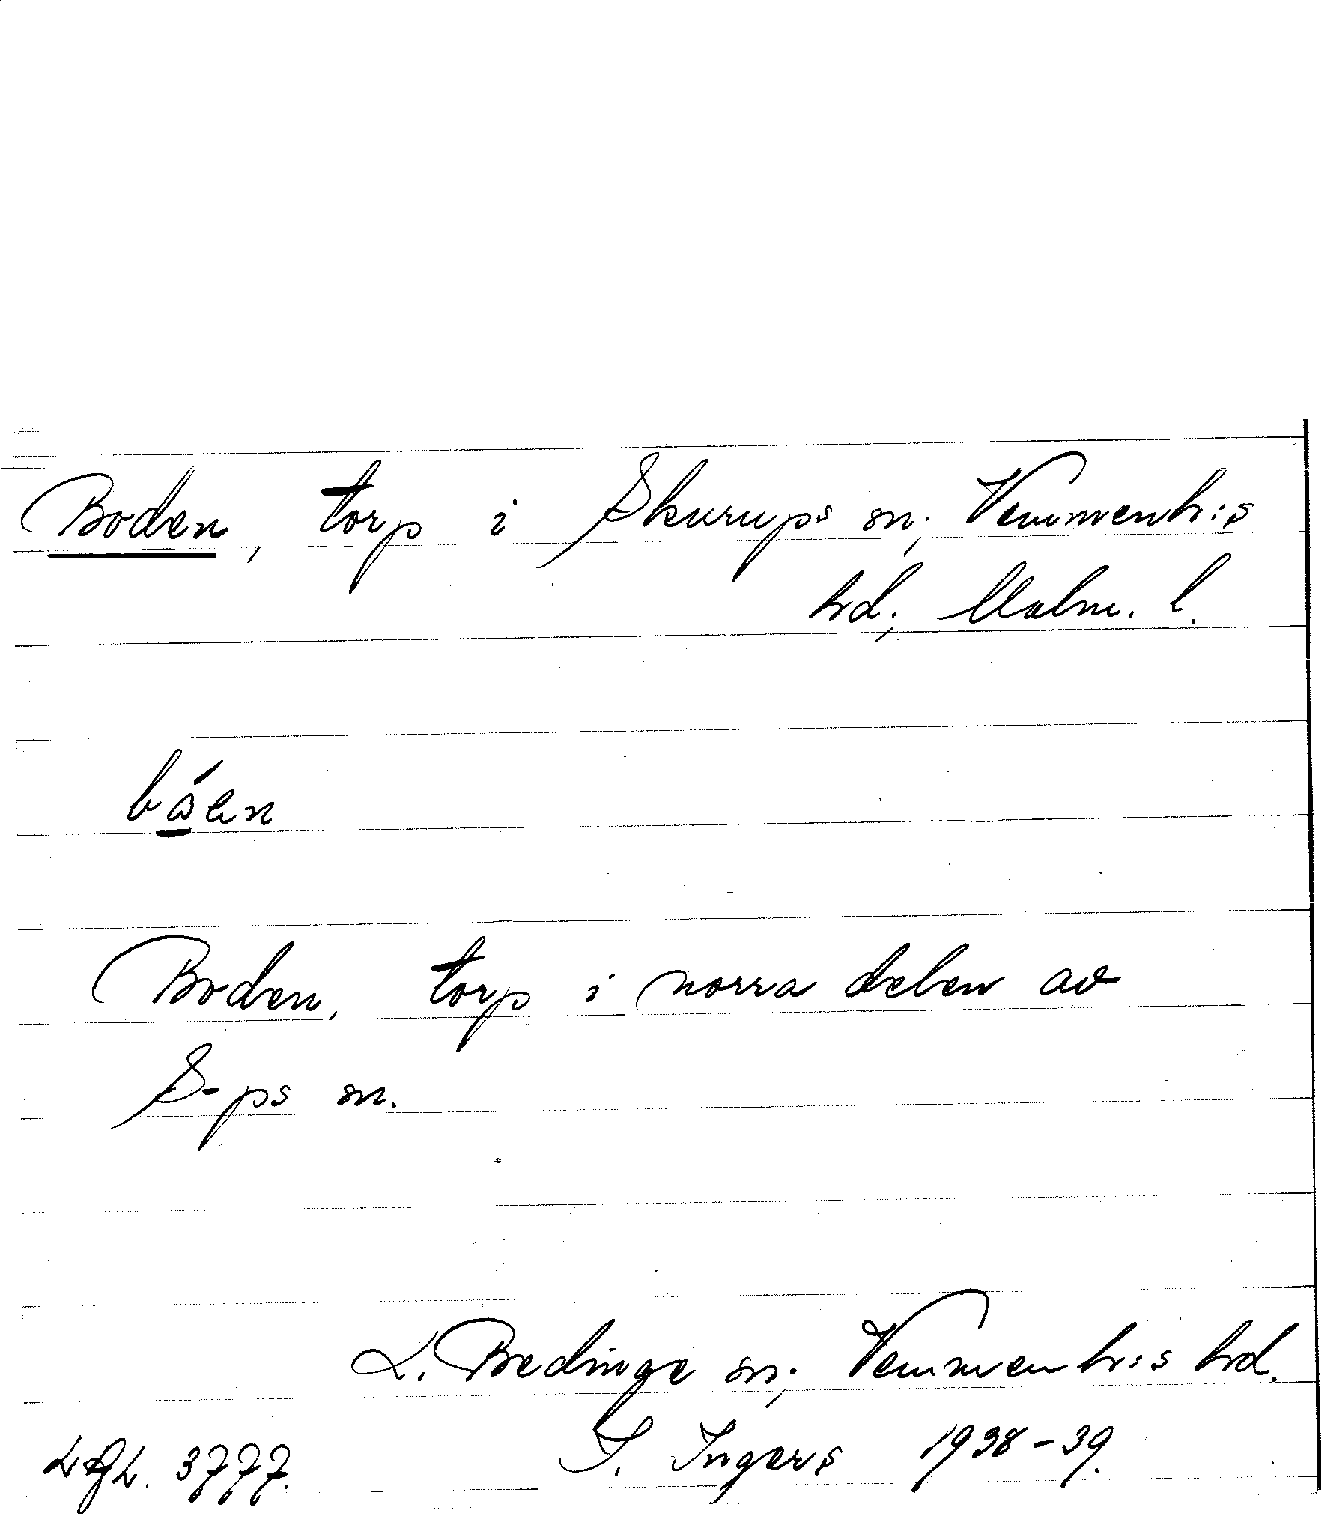 Boden, torp i Skurups sn, Vemmenh:s
hd, Malm. l.
båen
Boden, torp i norra delen av
S-ps sn.
L. Bedinge sn, Vemmenh:s hd.
3777. I. Ingers 1938-39.